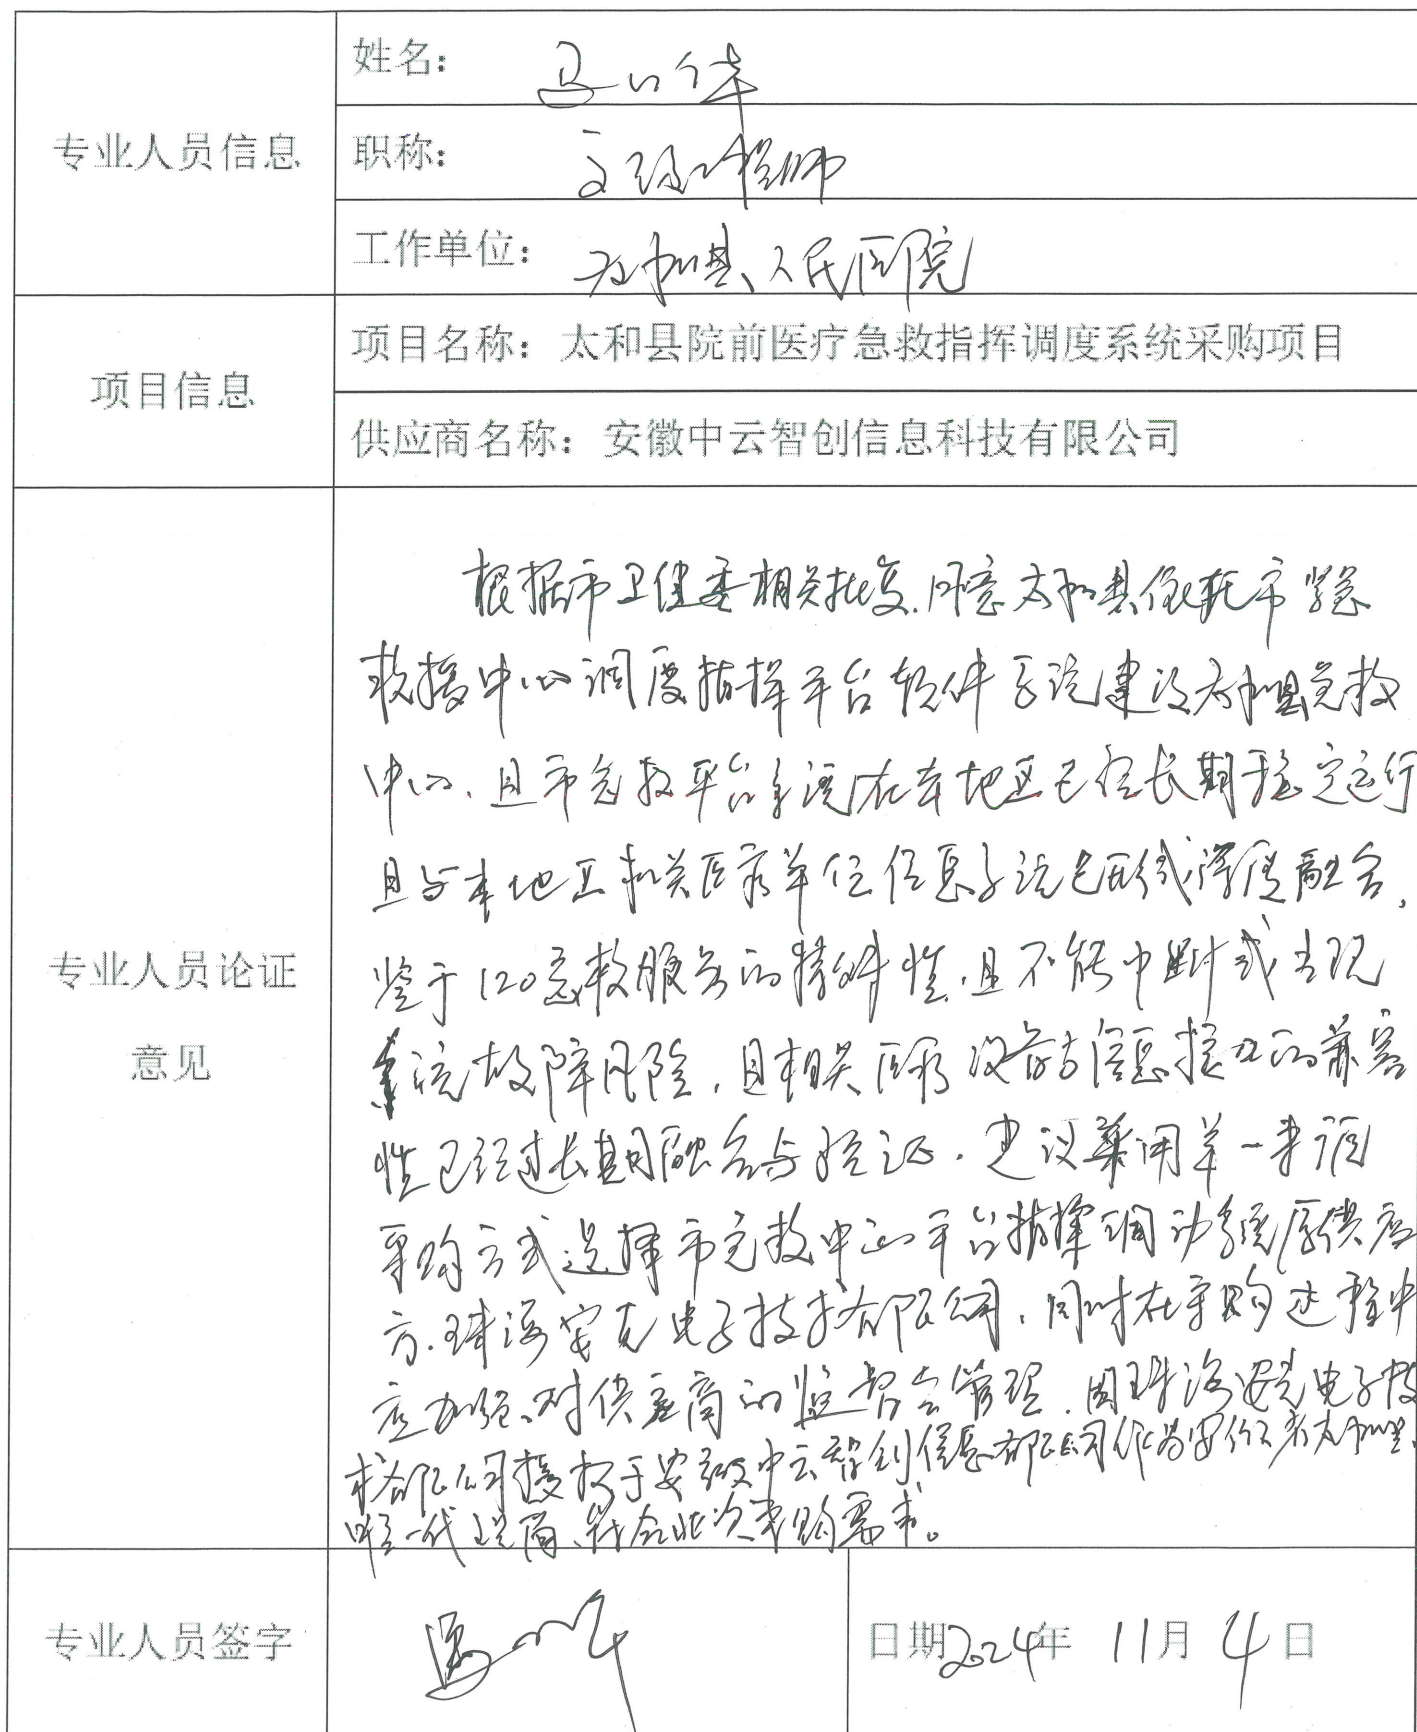 专业人员信息
姓名：
职称：工程师
工作单位：太和县人民医院
项目信息
项目名称：太和县院前医疗急救指挥调度系统采购项目
供应商名称：安徽中云智创信息科技有限公司
专业人员论证
意见
根据市卫健委相关批复，同意太和县依托市紧急
救援中心调度指挥平台软件系统建设太和县急救
中心，且市急救平台系统在本地区已经长期稳定运行
且与本地区相关医疗单位信息系统已形成深度融合，
鉴于120急救服务的特殊性，且不能中断或出现
系统故障风险，且相关医疗设备与信息接口的兼容
性已经过长期融合与验证，建议采用单一来源
采购方式选择市急救中心平台指挥调动系统原供应
方，珠海安克电子技术有限公司，同时在采购过程中
应加强对供应商的监督与管理，因珠海安克电子技
术有限公司授权于安徽中云智创信息有限公司作为太和县
唯一代理商，符合此次采购需求。
专业人员签字
日期2024年 11月 4日